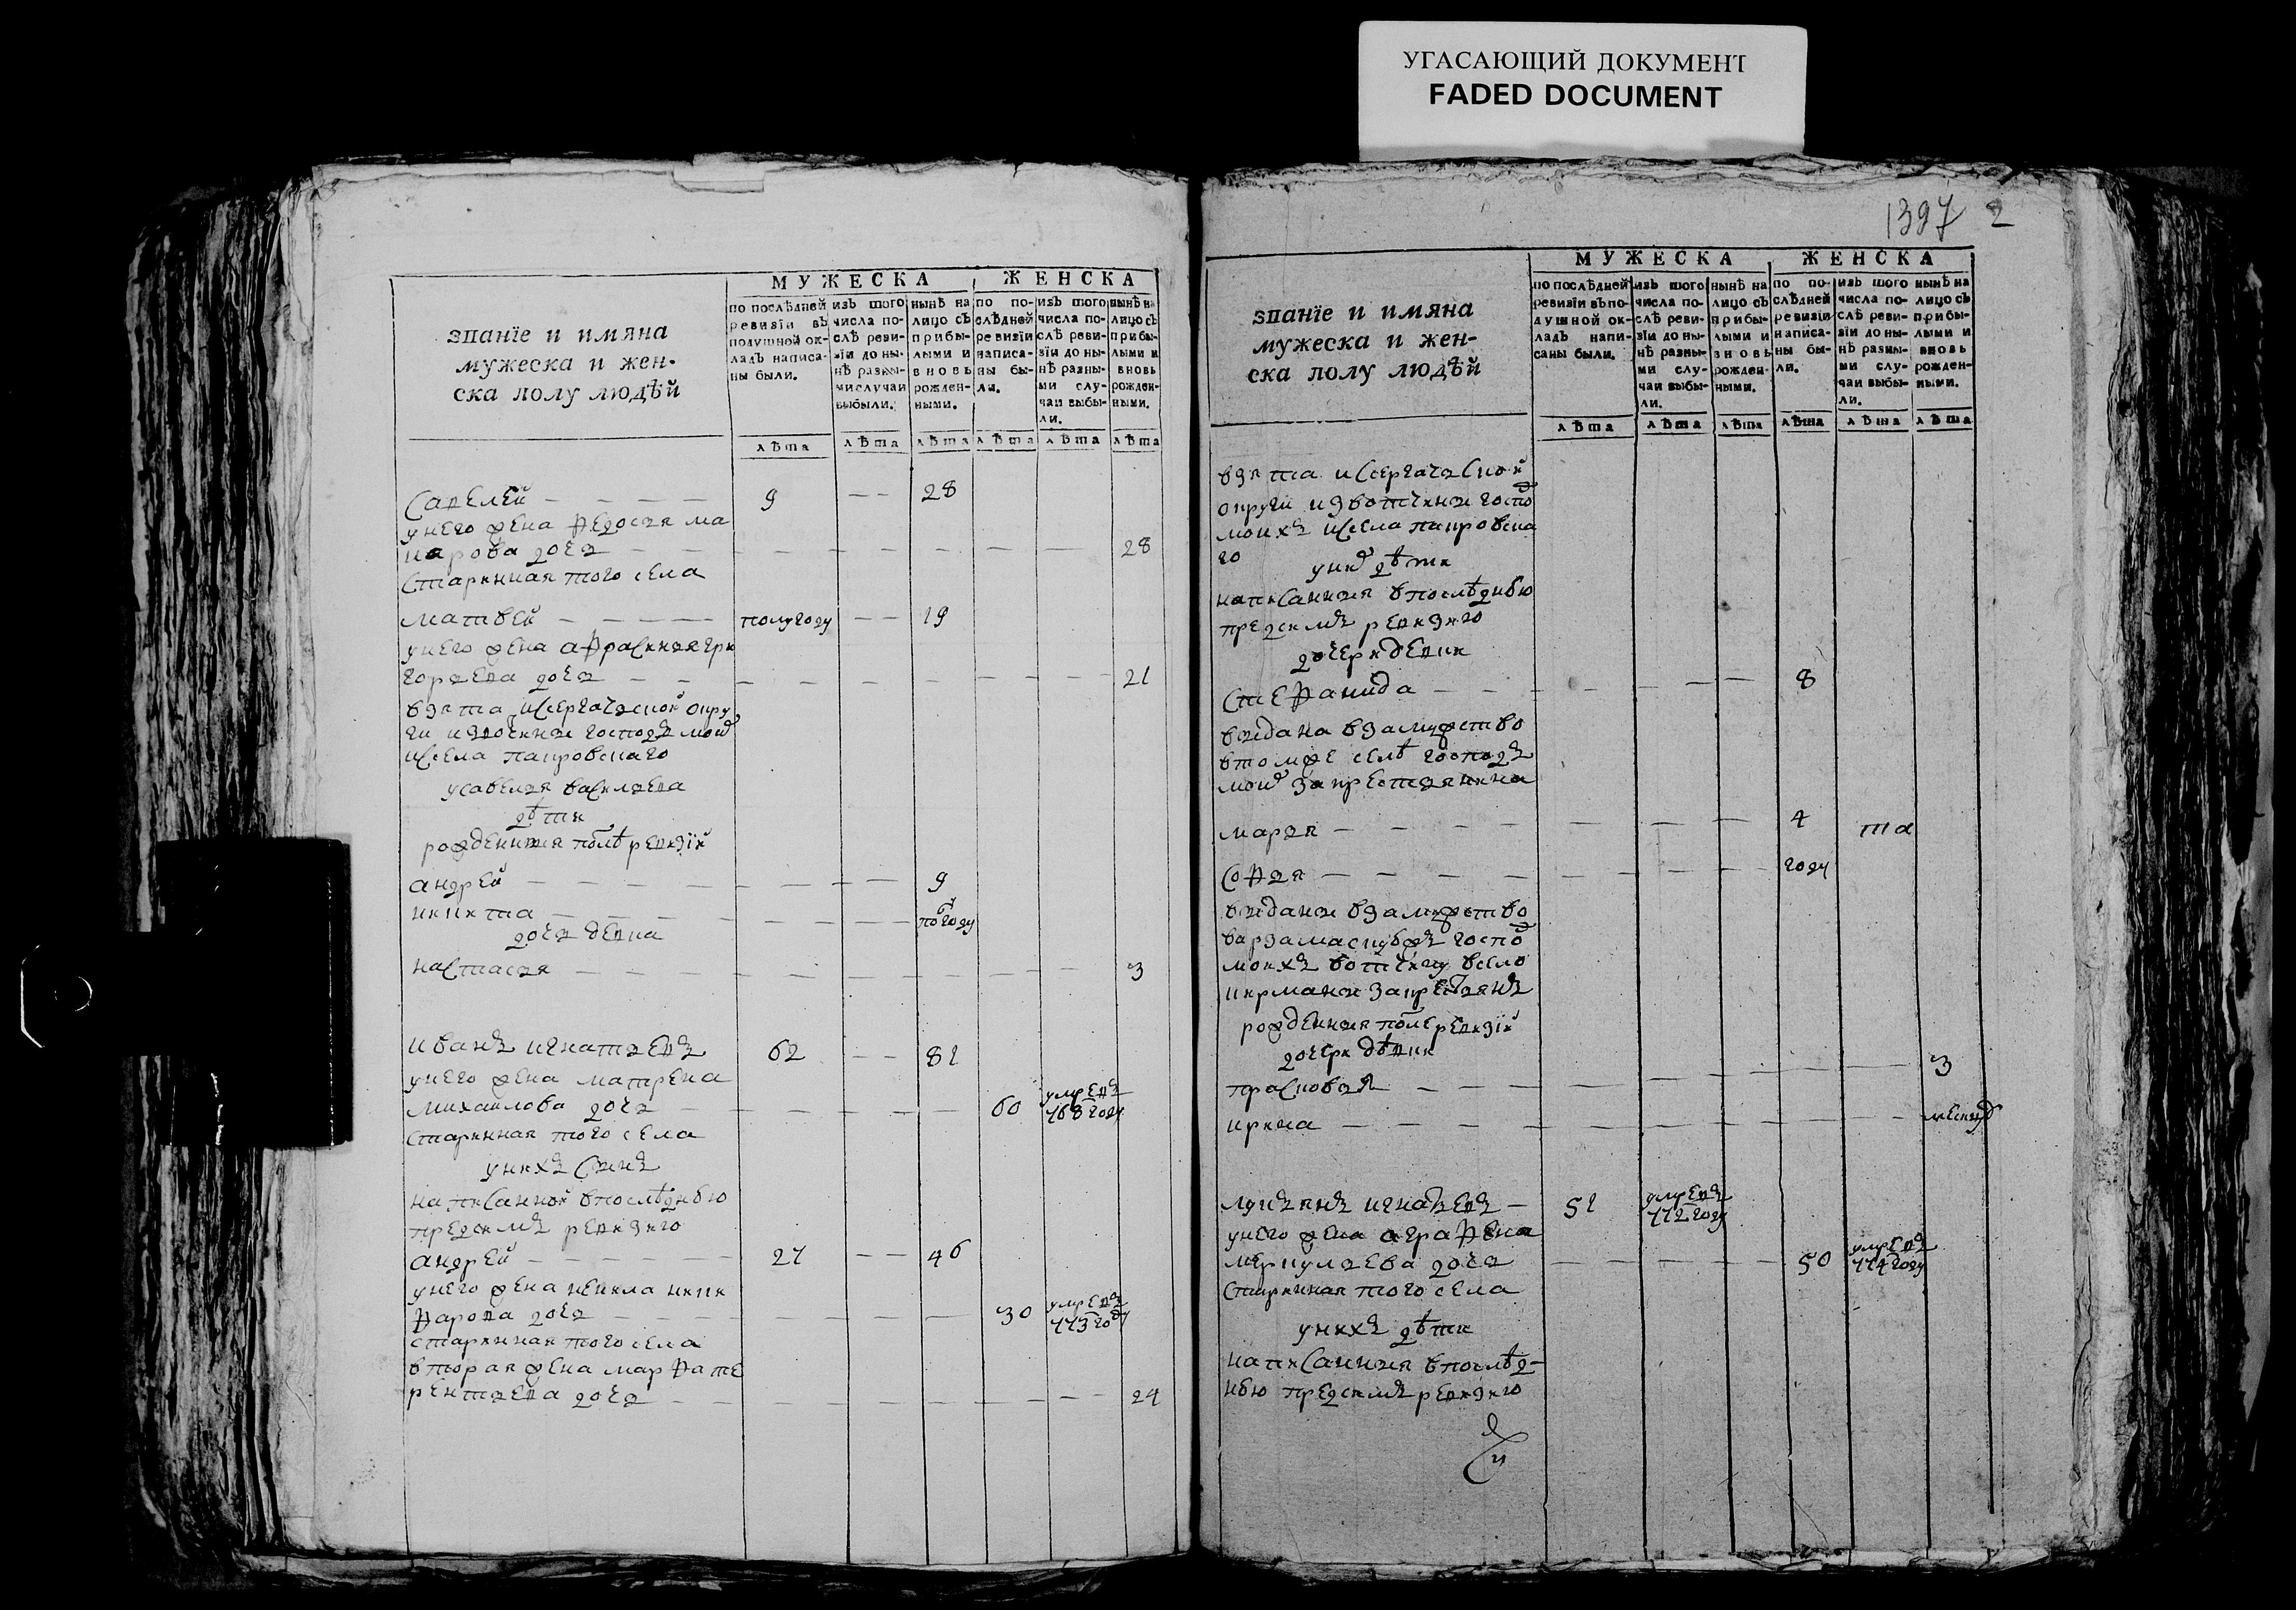 УГАСАЮЩИЙ ДОКУМЕНТ
FADED DOCUMENT
званіе и имяна
мужеска и жен-
ска полу людѣй
МУЖЕСКА
ЖЕНСКА
по послѣдней ревизіи въ подушной окладѣ написаны были.
изъ того числа послѣ ревизіи до нынѣ разными случаи выбыли.
нынѣ на лицо съ прибылыми и вновь рожденными.
по послѣдней ревизіи написаны были.
изъ того числа послѣ ревизіи до нынѣ разными случаи выбыли.
нынѣ на лицо съ прибылыми и вновь рожденными.
лѣта лѣта лѣта лѣта лѣта лѣта
савелей 9 28
у него жена федосья ма
карова дочь 28
старинная того села
матвей полугоду 19
у него жена афросинья гри
горьева дочь 21
взята исергачьской окру
ги извотчины господъ моих
исела покровскаго
усавелья васильева
дѣти
рожденныя послѣ ревизіи
андрей 9
никита погоду
дочь девка
настасья 3
иванъ игнатьевъ 62 81
у него жена матрена
михаилова дочь 60 умре въ 768 году
старинная того села
у нихъ сынъ
написанной в последнюю
пред симъ ревизию
андрей 27 46
у него жена некила ники
фарова дочь 30 умре въ 773 году
старинная того села
вторая жена марфа те
рентьева дочь 24
1397 2
званіе и имяна
мужеска и жен-
ска полу людѣй
МУЖЕСКА
ЖЕНСКА
по послѣдней ревизіи въ подушной окладъ написаны были.
изъ того числа послѣ ревизіи до нынѣ разными случаи выбыли.
нынѣ на лицо съ прибылыми и вновь рожденными.
по послѣдней ревизіи написаны были.
изъ того числа послѣ ревизіи до нынѣ разными случаи выбыли.
нынѣ на лицо съ прибылыми и вновь рожденными.
лѣта лѣта лѣта лѣта лѣта лѣта
взята исергачьской
округи извотчины госпд
моихъ исела покровска
го
у них дѣти
написанныя в послѣднюю
пред симъ ревизию
дочери девки
стефанида 8
выдана взамужство
втомже селѣ господъ
моих за крестьянина
марья 4 та
софья году
выданы взамужство
варзамаскую господ
моихъ вотчину всело
кирманы за крестьянъ
рожденныя после ревизіи
дочери дѣвки
прасковья 3
ирина месяц
лукьянъ игнатьевъ 51 умре въ 772 году
у него жена аграфена
меркульева дочь 50 умре въ 774 году
старинная того села
у нихъ дѣти
написанныя в послѣд-
нюю пред симъ ревизию